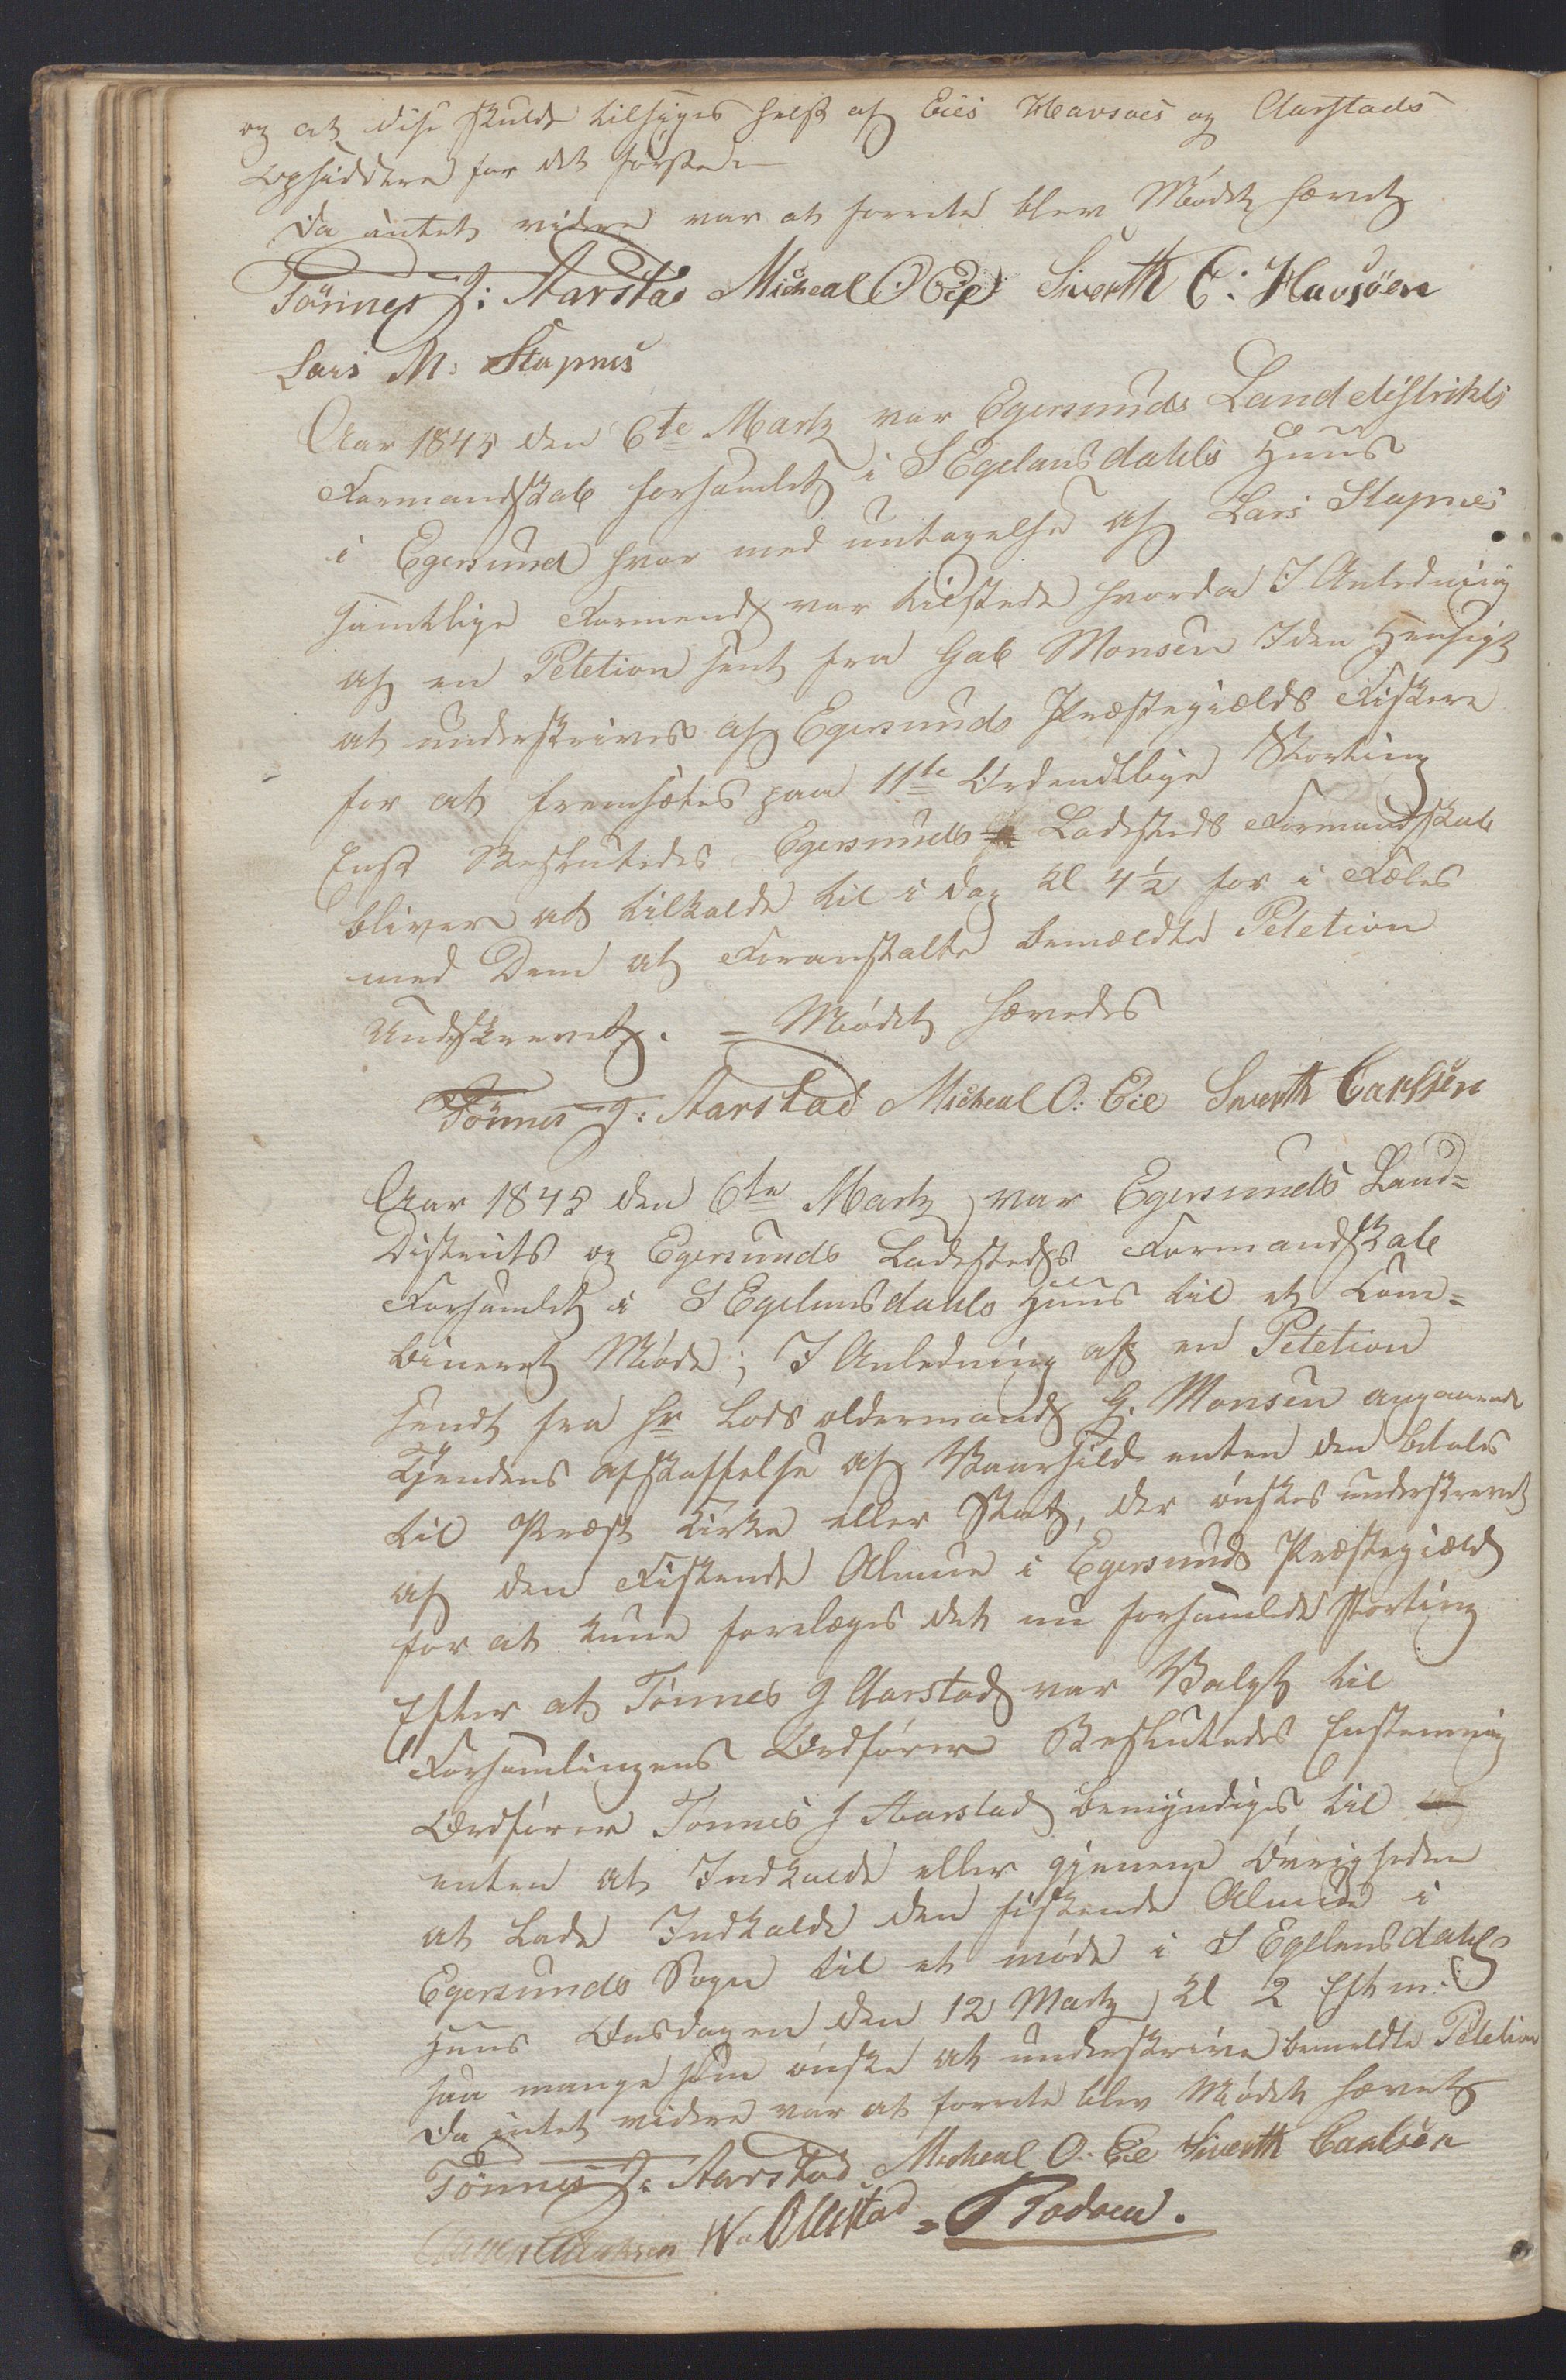 og at disse skulde tilsiges helst af Eies Havsøes og Aarstads
Opsiddere for det første.
Da intet videre var at forrete blev Mødet hævet
Tönnes J: Aarstad Micheal O Eie Siverth C: Havsöen
Lars M: Stapnes
Aar 1845 den 6te Martz var Egersunds Landdistrikts
Formandskab forsamlet i S Egelansdahls Huus
i Egersund hvor med untagelse af Lars Stapnes
samtlige Formend var tilstede hvorda I Anledning
af en Petetion sent fra Gab Monsen I den Hensigt
at underskrives af Egersunds Præstegiælds Fiskere
for at fremsætes paa 11te Ordendtlige Storting
Enst Besluttedes Egersunds Ladesteds Formandskab
bliver at tilkalde til i dag Kl 4½ for i Fæles
med Dem at Foranstalte bemældte Petetion
Undskrevet. = Mødet hævedes
Tönnes J: Aarstad Micheal O: Eie Siverth Carlsen
Aar 1845 den 6te Martz var Egersunds Land=
Districts og Egersunds Ladesteds Formandskab
Forsamlet i S Egelunsdahls Huus til et Com=
bineret Møde; I Anledning af en Petetion
sendt fra Hr Lods oldermand G. Monsen angaaende
Tjendens afskaffelse af Vaarsild enten den betales
til Præst Kirke eller Stat, der ønskes underskrevet
af den Fiskende Almue i Egersunds Præstegiæld
for at kune forelæges det nu forsamlede Storting
Efter at Tönnes J Aarstad var Valgt til
Forsamlingens Ordfører Beslutedes Enstemmig
Ordfører Tönnes J Aarstad bemyndiges til
enten at Indkalde eller gjenem Øvrigheden
at Lade Indkalde den fiskende Almue i
Egersunds Sogn til et møde i S Egelensdahls
Huus Onsdagen den 12 Martz Kl 2 Efm:
saa mange som ønske at underskrive bemeldte Petetion
Da intet videre var at forrete blev Mødet hævet
Tönnes J: Aarstad Micheal O: Eie Siverth Carlsen
W. Ollestad =